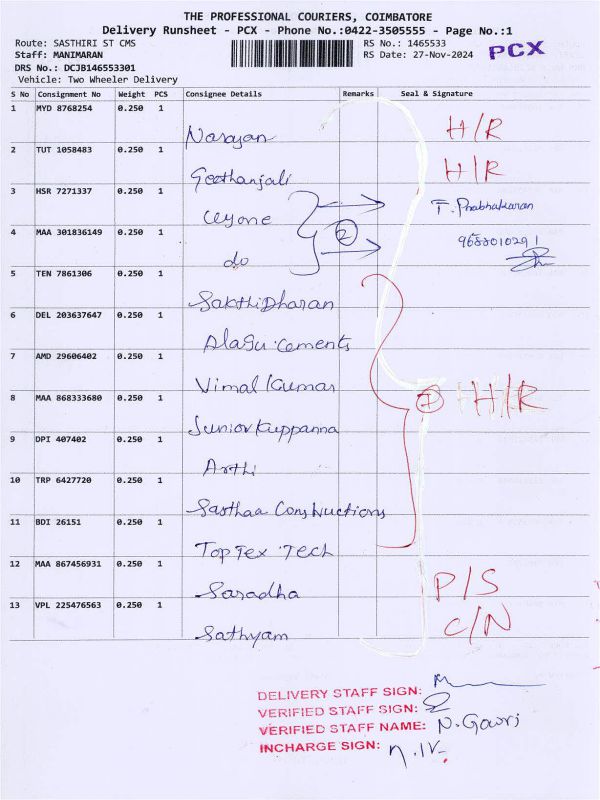 THE PROFESSIONAL COURIERS, COIMBATORE
Delivery Runsheet - PCX - Phone No.:0422-3505555 - Page No.:1
Route: SASTHIRI ST CMS RS No.: 1465533
Staff: MANIMARAN RS Date: 27-Nov-2024 PCX
DRS No.: DCJB146553301
Vehicle: Two Wheeler Delivery
S No Consignment No Weight PCS Consignee Details Remarks Seal & Signature
1 MYD 8768254 0.250 1
Narayan H/R
2 TUT 1058483 0.250 1
Geethanjali H/R
3 HSR 7271337 0.250 1
Ceyone T. Prabhakaran
4 MAA 301836149 0.250 1
do 2 9688010291
5 TEN 7861306 0.250 1
SakthiDharan
6 DEL 203637647 0.250 1
Alagu Cements
7 AMD 29606402 0.250 1
Vimal Kumar
8 MAA 868333680 0.250 1 7 H/R
Junior Kuppanna
9 DPI 407402 0.250 1
Arthi
10 TRP 6427720 0.250 1
Sasthaa Constructions
11 BDI 26151 0.250 1
TopTex Tech
12 MAA 867456931 0.250 1
Saradha P/S
13 VPL 225476563 0.250 1
Sathyam C/N
DELIVERY STAFF SIGN:
VERIFIED STAFF SIGN:
VERIFIED STAFF NAME: N. Gowri
INCHARGE SIGN: